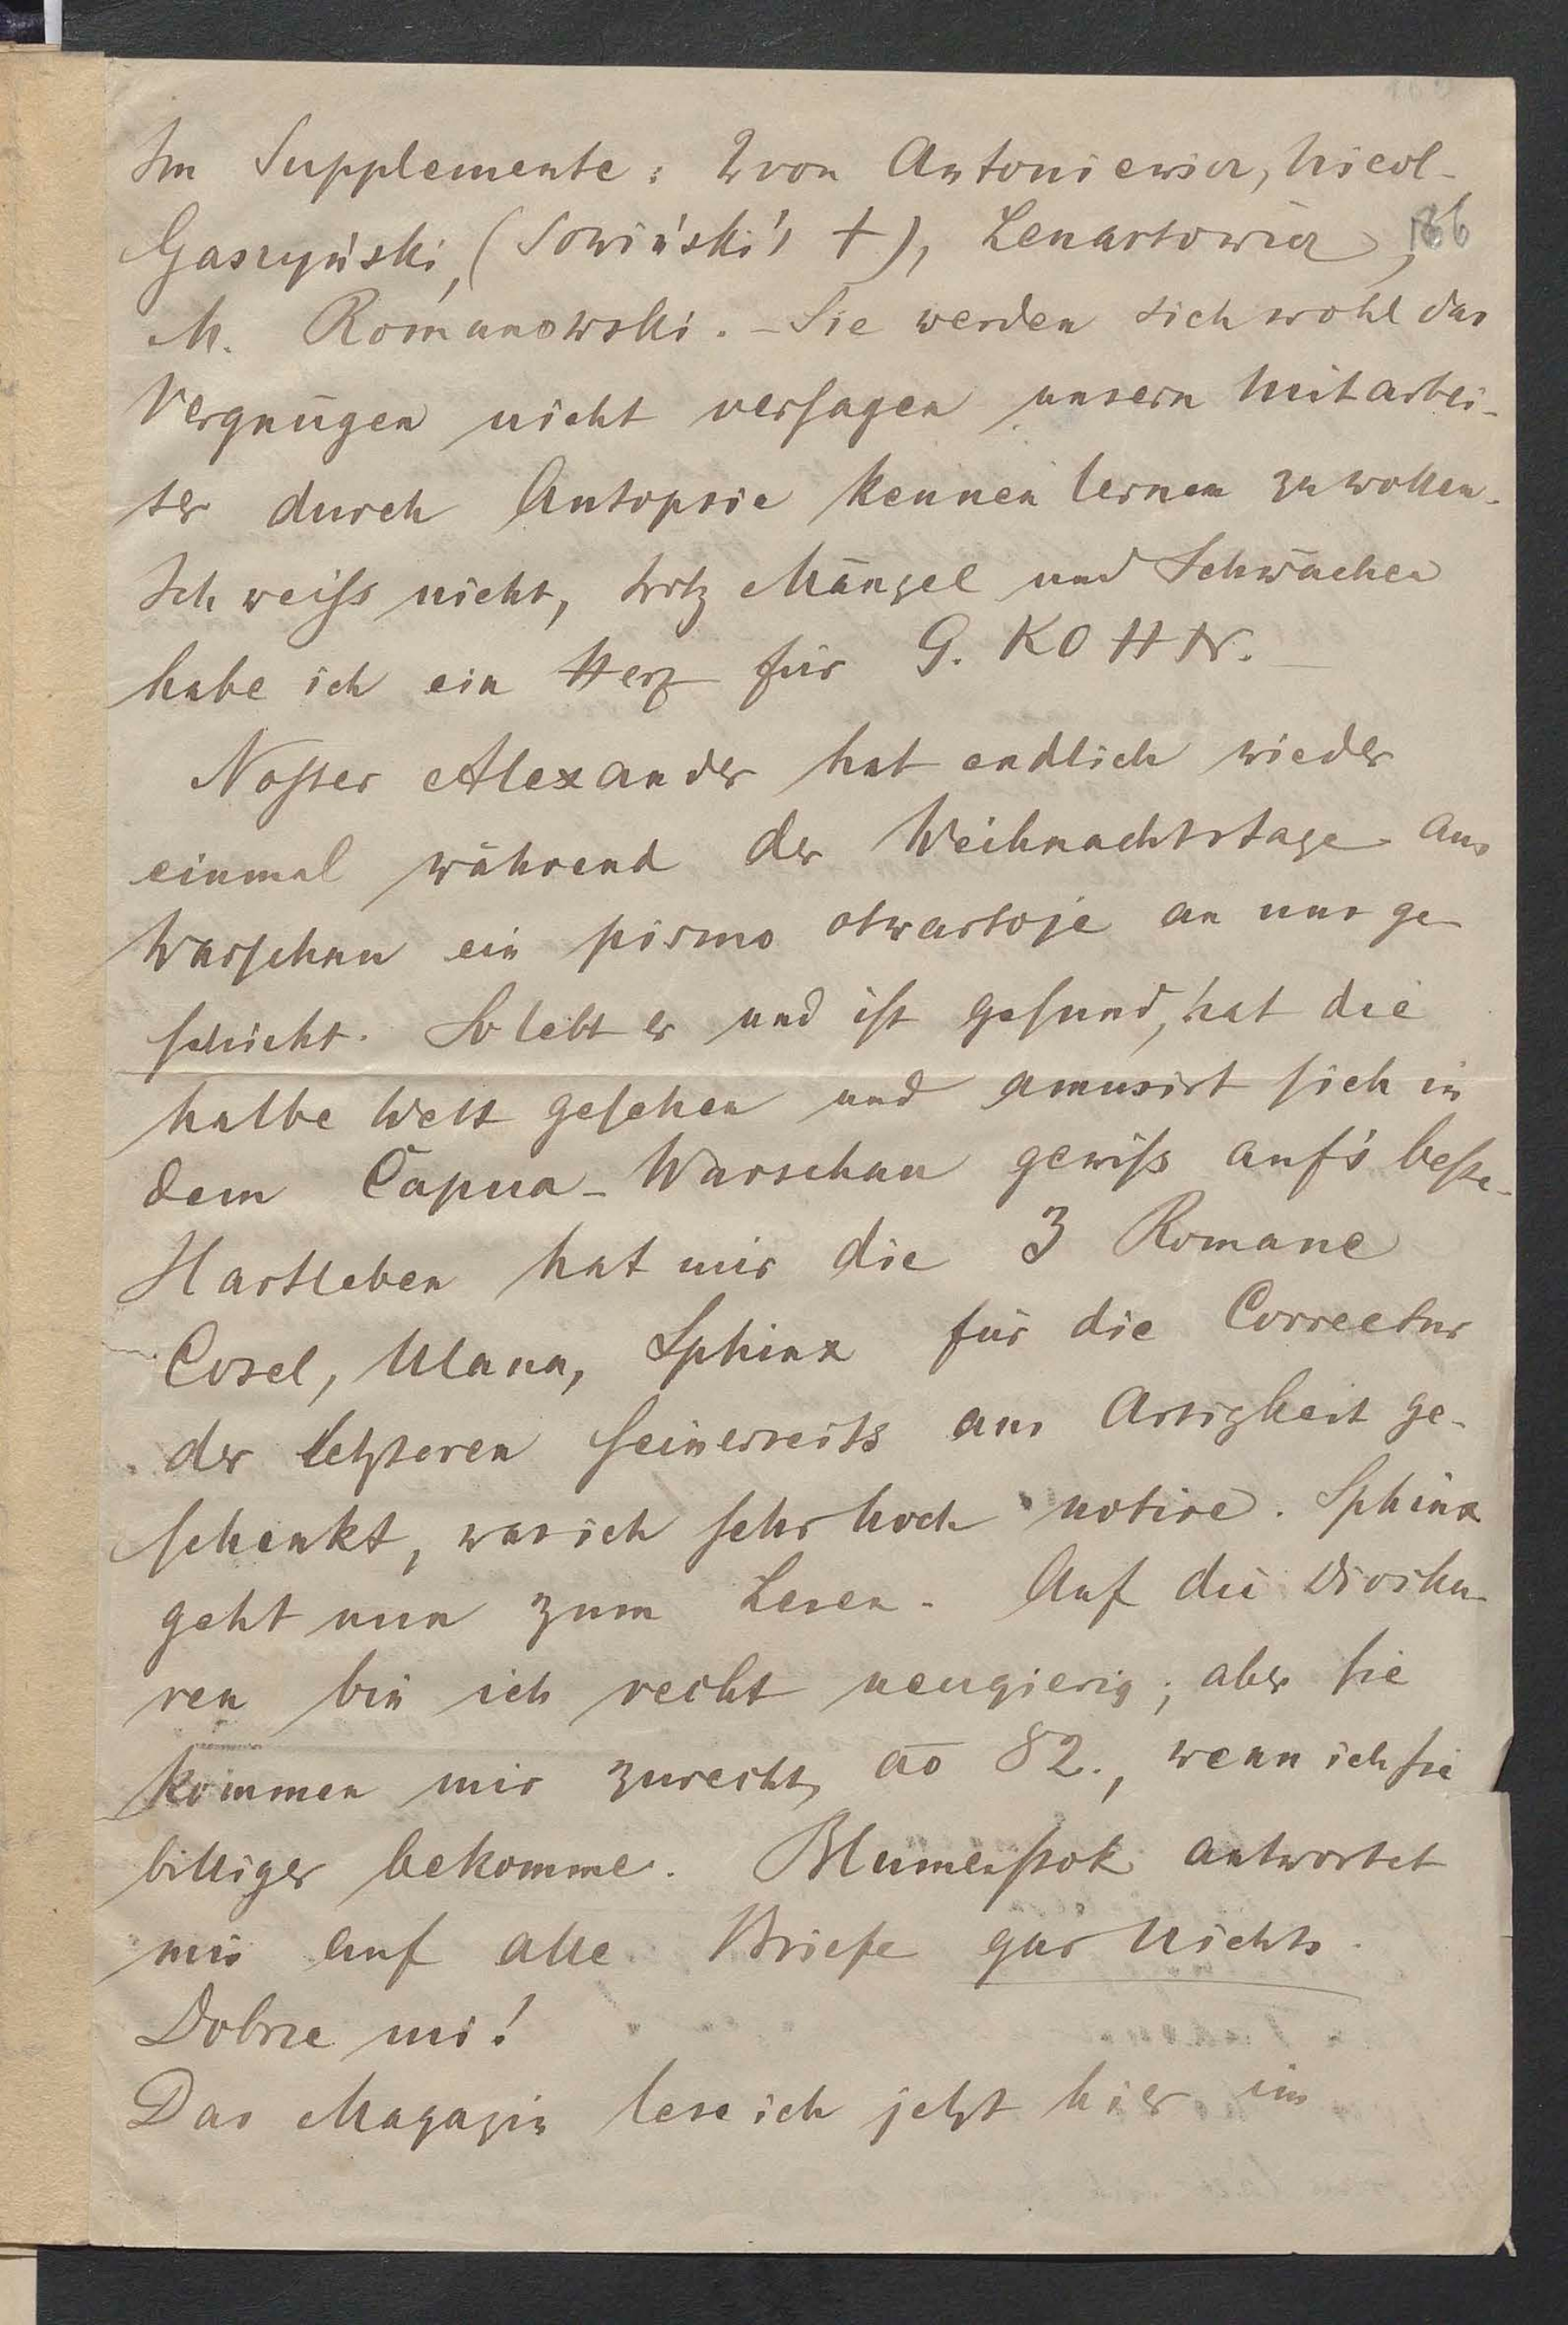 Im Supplemente: 2 von Antoniewicz, Nicol.
Gaszyński, (Sowiński's †), Lenartowicz,
166
M. Romanowski. – Sie werden sich wohl das
Vergnügen nicht versagen unsern Mitarbei-
ter durch Autopsie kennen lernen zu wollen.
Ich weiss nicht, trotz Mängel und Schwächen
habe ich ein Herz für G. KOHN. –
Noster Alexander hat endlich wieder
einmal während der Weihnachtstage aus
Warschau ein pismo otwartoje an uns ge-
schickt. So lebt er und ist gesund, hat die
halbe Welt gesehen und amusirt sich in
dem Capua-Warschau gewiss auf's beste.
Hartleben hat mir die 3 Romane
Cosel, Ulana, Sphinx für die Correctur
der letzteren seinerseits aus Artigkeit ge-
schenkt, was ich sehr hoch notire. Sphinx
geht nun zum Lesen. Auf die Diosku-
ren bin ich recht neugierig; aber sie
kommen mir zurecht, ao 82., wenn ich sie
billiger bekomme. Blumenstok antwortet
mir auf alle Briefe gar Nichts.
Dobrze mi!
Das Magazin lese ich jetzt hier im